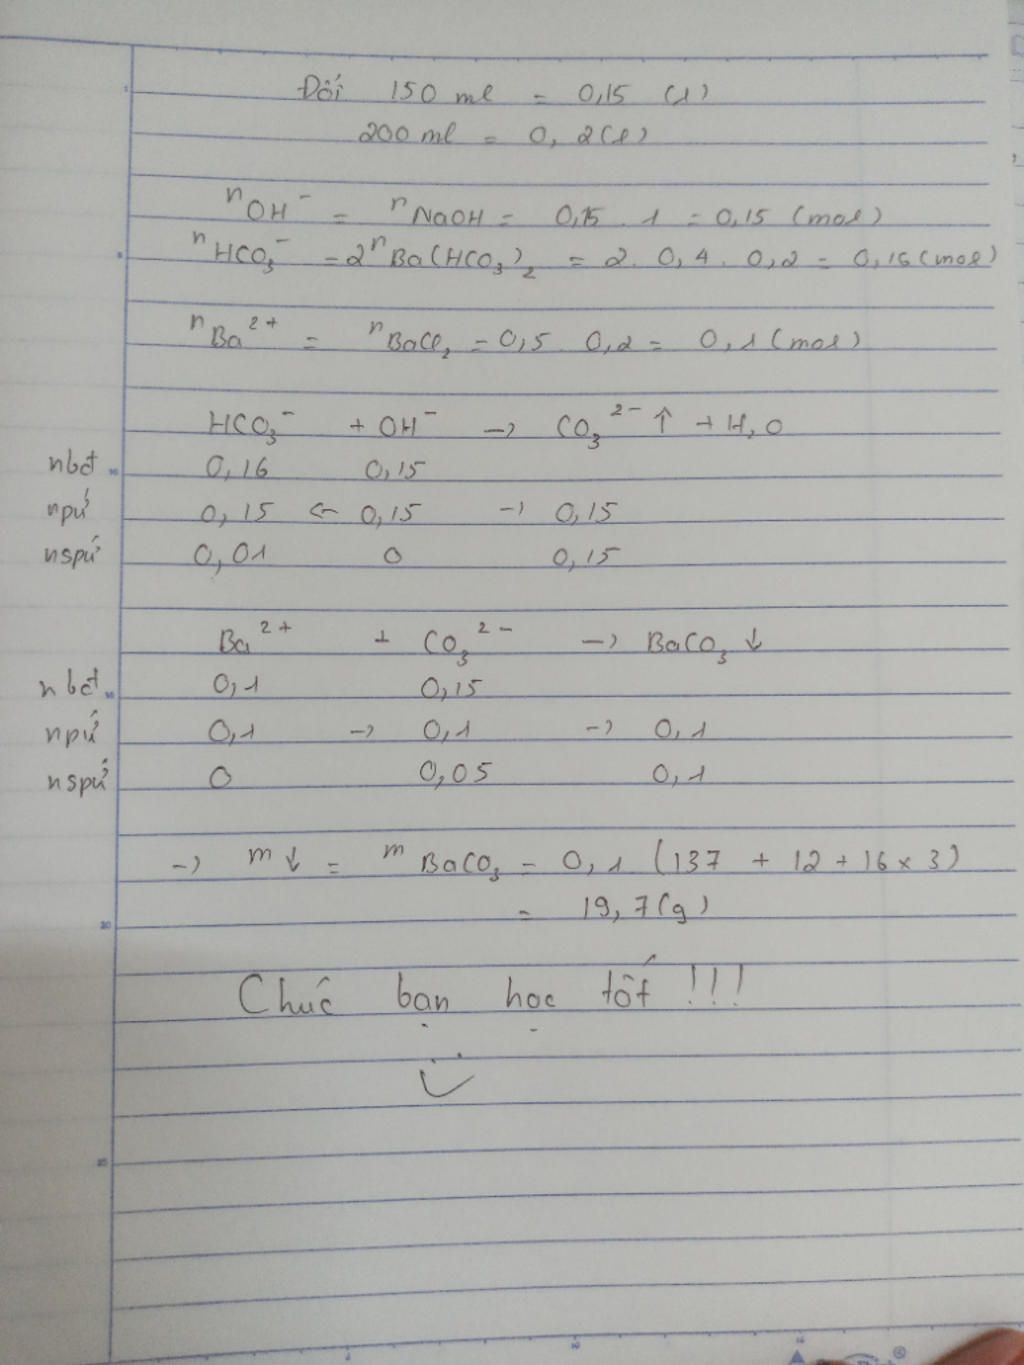 Đổi 150 ml = 0,15 (l)
200 ml = 0,2(l)
nOH⁻ = nNaOH = 0,15 . 1 = 0,15 (mol)
nHCO₃⁻ = 2nBa(HCO₃)₂ = 2. 0,4. 0,2 = 0,16 (mol)
nBa²⁺ = nBaCl₂ = 0,5 0,2 = 0,1 (mol)
HCO₃⁻ + OH⁻ → CO₃²⁻ ↑ + H₂O
nbđ 0,16 0,15
npứ 0,15 ← 0,15 → 0,15
nspứ 0,01 0 0,15
Ba²⁺ + CO₃²⁻ → BaCO₃ ↓
nbđ 0,1 0,15
npứ 0,1 → 0,1 → 0,1
nspứ 0 0,05 0,1
→ m↓ = mBaCO₃ = 0,1 (137 + 12 + 16 x 3)
= 19,7(g)
Chúc bạn học tốt !!!